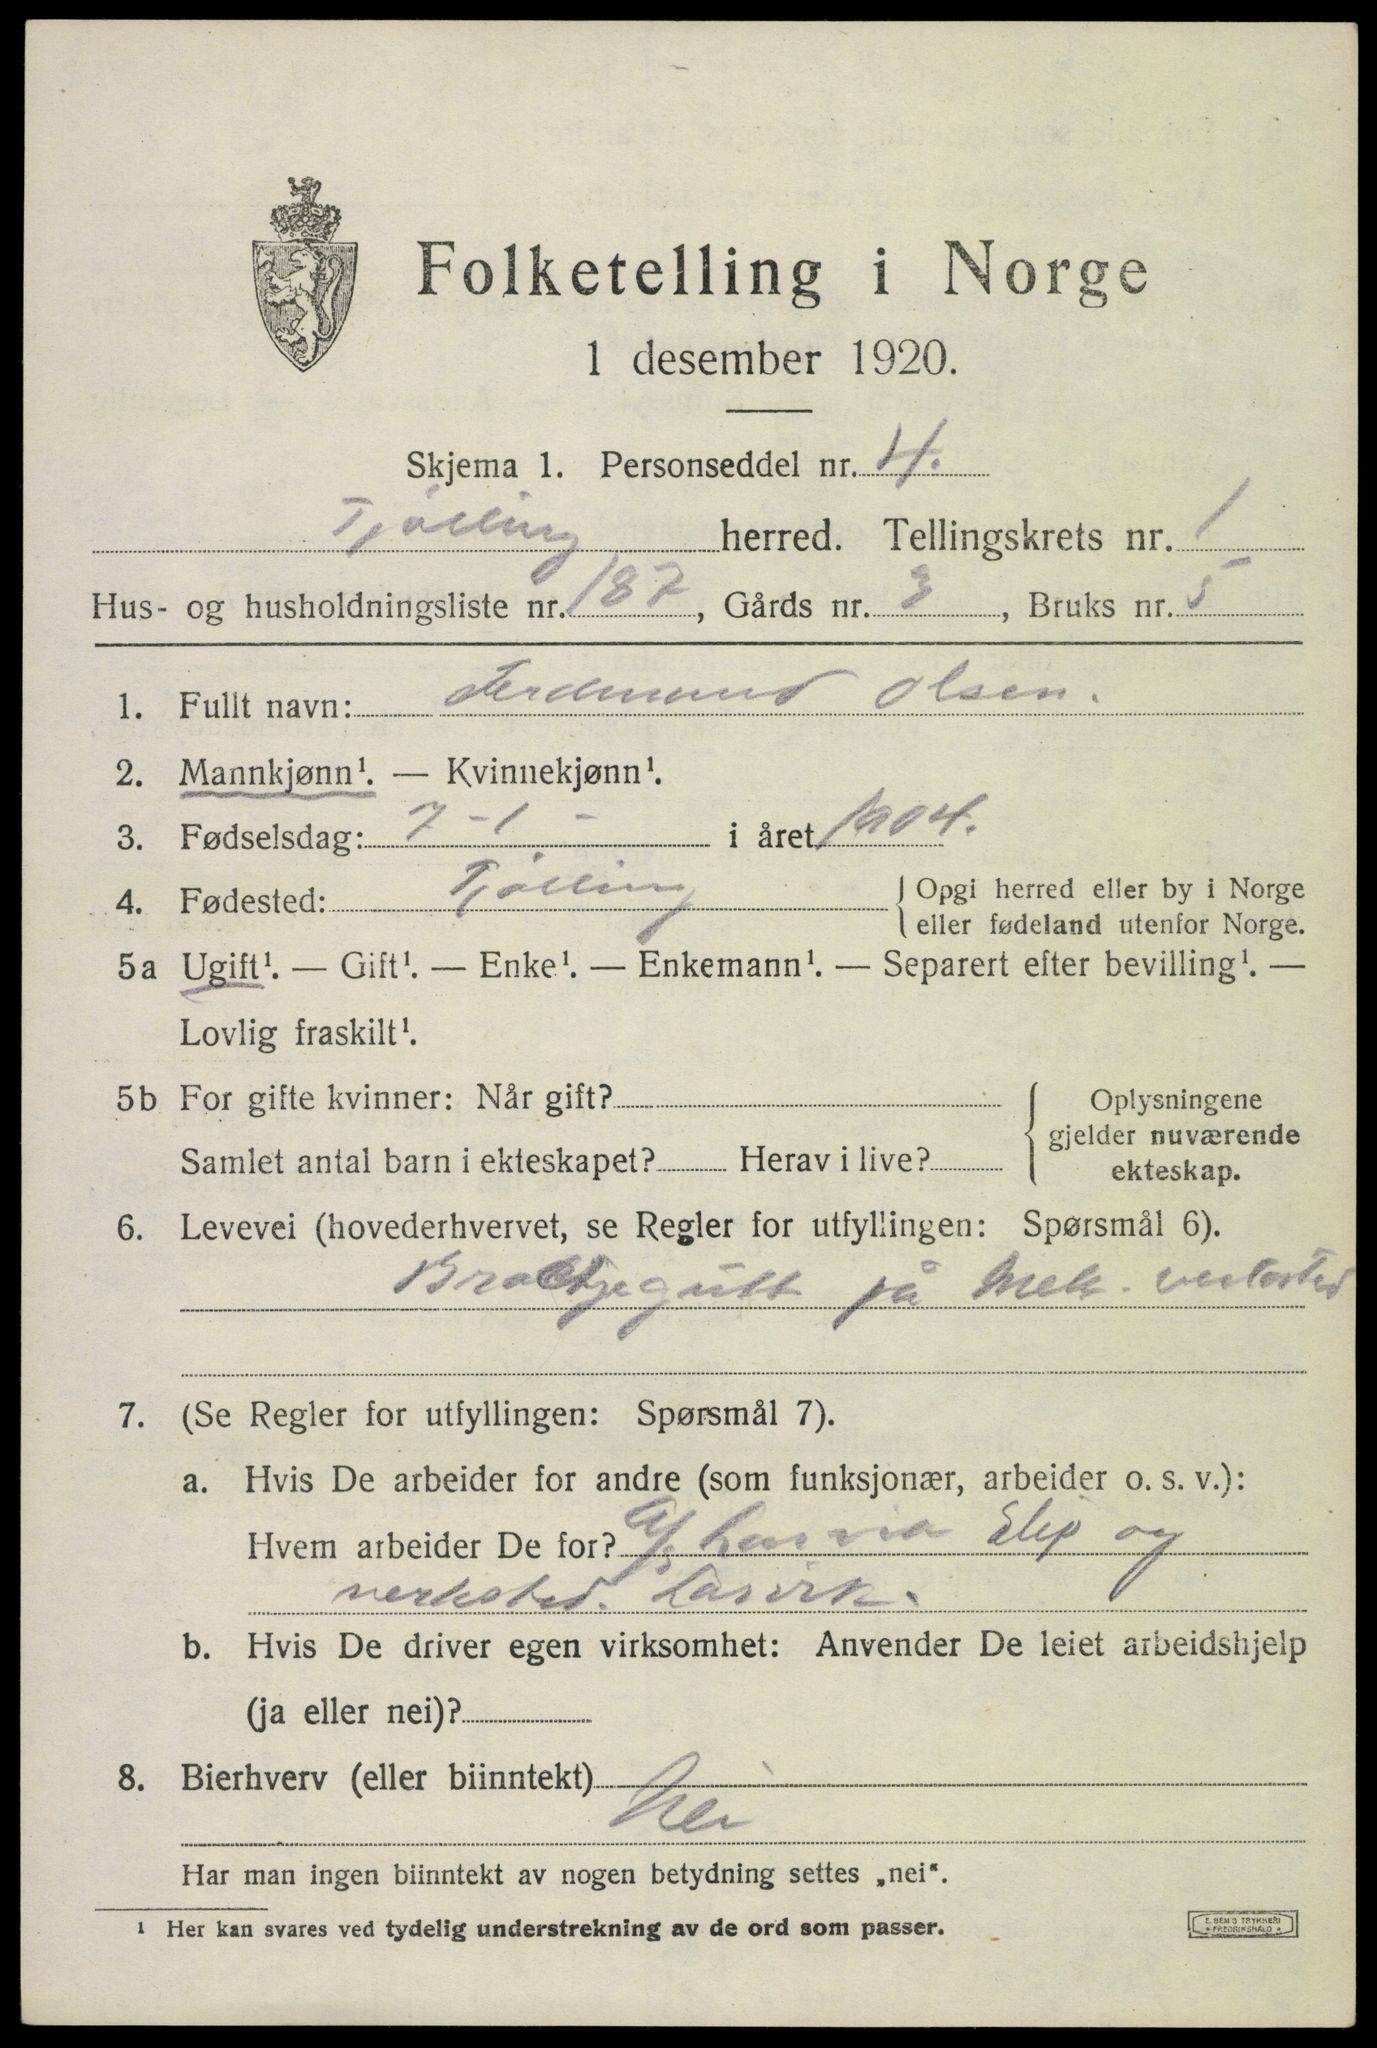 Folketelling i Norge
1 desember 1920.
Skjema 1. Personseddel nr. 4.
Tjølling herred. Tellingskrets nr. 1
Hus- og husholdningsliste nr. 187, Gårds nr. 3, Bruks nr. 5
1. Fullt navn: Ferdinand Olsen.
2. Mannkjønn¹. — Kvinnekjønn¹.
3. Fødselsdag: 7-1- i året 1904.
4. Fødested: Tjølling { Opgi herred eller by i Norge
eller fødeland utenfor Norge.
5a Ugift¹. — Gift¹. — Enke¹. — Enkemann¹. — Separert efter bevilling¹. —
Lovlig fraskilt¹.
5b For gifte kvinner: Når gift?
Samlet antal barn i ekteskapet? Herav i live?
{ Oplysningene
gjelder nuværende
ekteskap.
6. Levevei (hovederhvervet, se Regler for utfyllingen: Spørsmål 6).
på Mek. verksted
7. (Se Regler for utfyllingen: Spørsmål 7).
a. Hvis De arbeider for andre (som funksjonær, arbeider o. s. v.):
Hvem arbeider De for? A/S Larvik Slip og
verksted. Larvik.
b. Hvis De driver egen virksomhet: Anvender De leiet arbeidshjelp
(ja eller nei)?
8. Bierhverv (eller biinntekt)
Nei
Har man ingen biinntekt av nogen betydning settes „nei“.
¹ Her kan svares ved tydelig understrekning av de ord som passer.
E. SEM'S TRYKKERI
FREDRIKSHALD